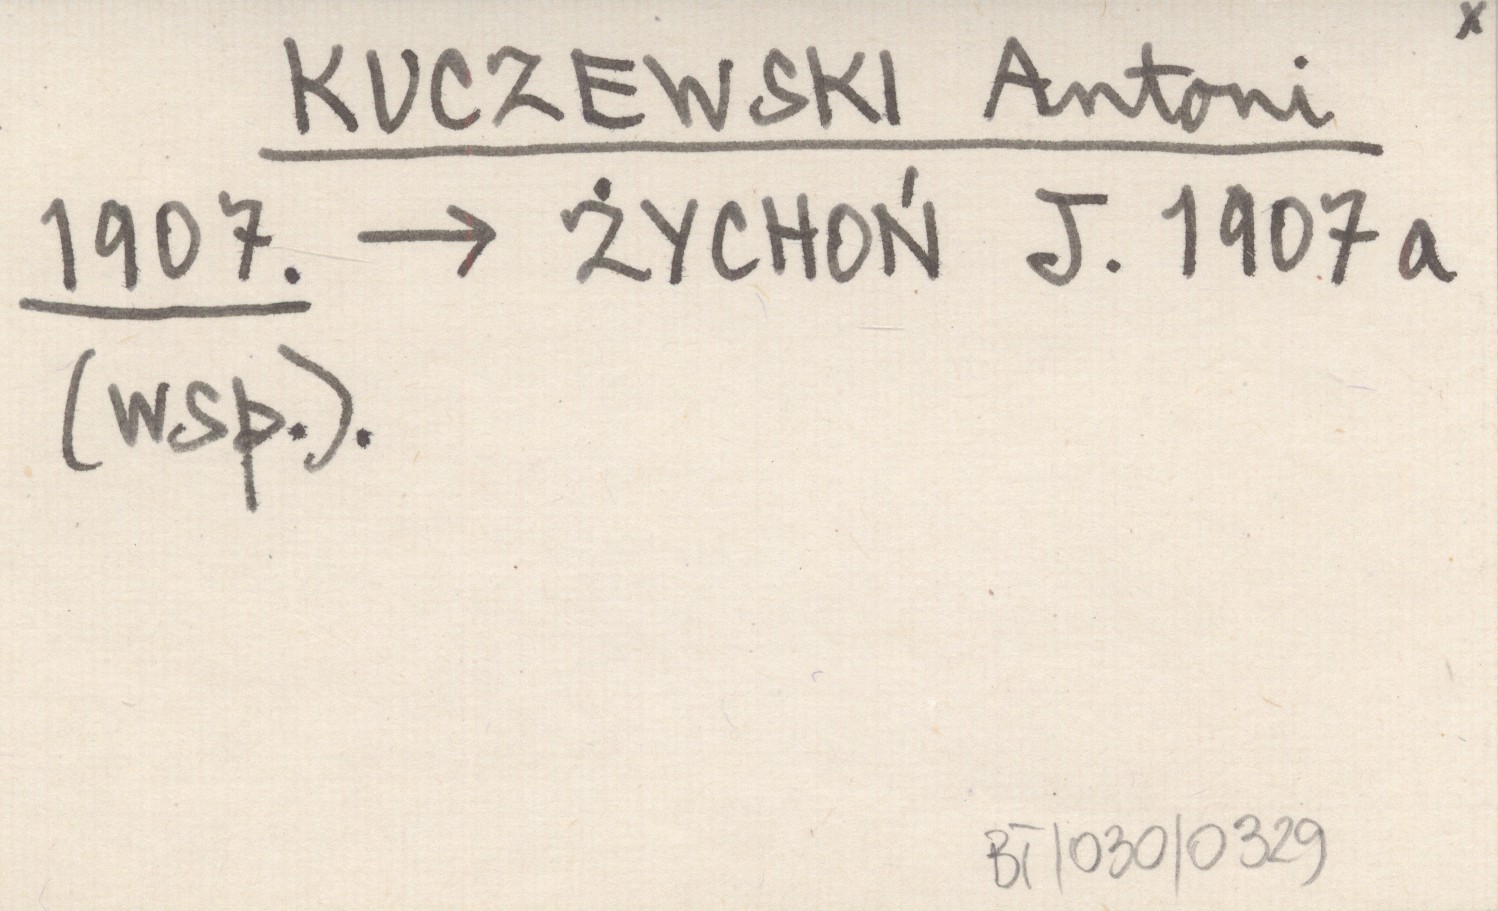 x
KUCZEWSKI Antoni
1907. → ŻYCHOŃ J. 1907a
(wsp.).
BT/030/0329